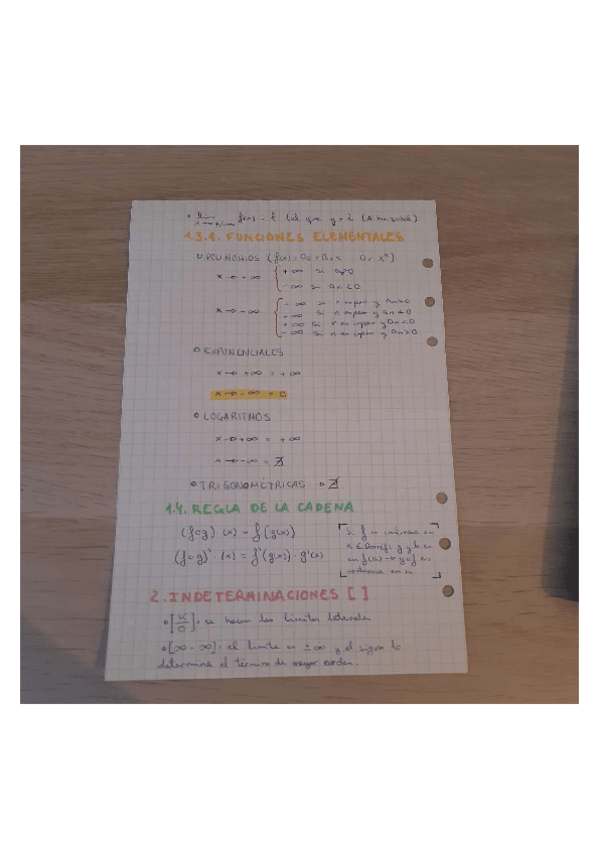 lim f(x) = l tal que y = l (A. horizontal)
1.3.1. FUNCIONES ELEMENTALES
POLINOMIOS (f(x) = a₀ + a₁x aₙ xⁿ)
x→+∞ { +∞ si aₙ>0
-∞ si aₙ<0
x→-∞ { -∞ si n impar y aₙ>0
-∞ si n es par y aₙ<0
+∞ si n es impar y aₙ<0
-∞ si n es y aₙ>0
EXPONENCIALES
x→+∞ = +∞
x→-∞ = 0
LOGARITMOS
x→+∞ = +∞
x→-∞ = ∄
TRIGONOMÉTRICAS → ∄
1.4. REGLA DE LA CADENA
(f∘g)(x) = f(g(x))
(f∘g)'(x) = f'(g(x)) · g'(x)
Si f es continua en
a ∈ Dom(f) y g lo es
en f(a) → g∘f es
continua en a
2. INDETERMINACIONES [ ]
[K/0] → se hacen los límites laterales
[∞-∞] → el límite es ±∞ y el signo lo
determina el término de mayor orden.